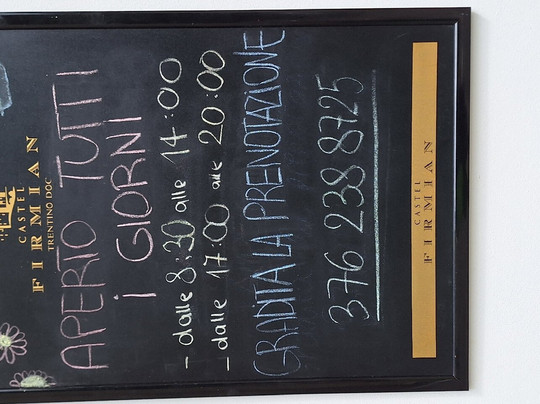 CASTEL
FIRMIAN
TRENTINO DOC
APERTO TUTTI
I GIORNI
- dalle 8:30 alle 14:00
- dalle 17:00 alle 20:00
GRADITA LA PRENOTAZIONE
376 238 8725
CASTEL
FIRMIAN